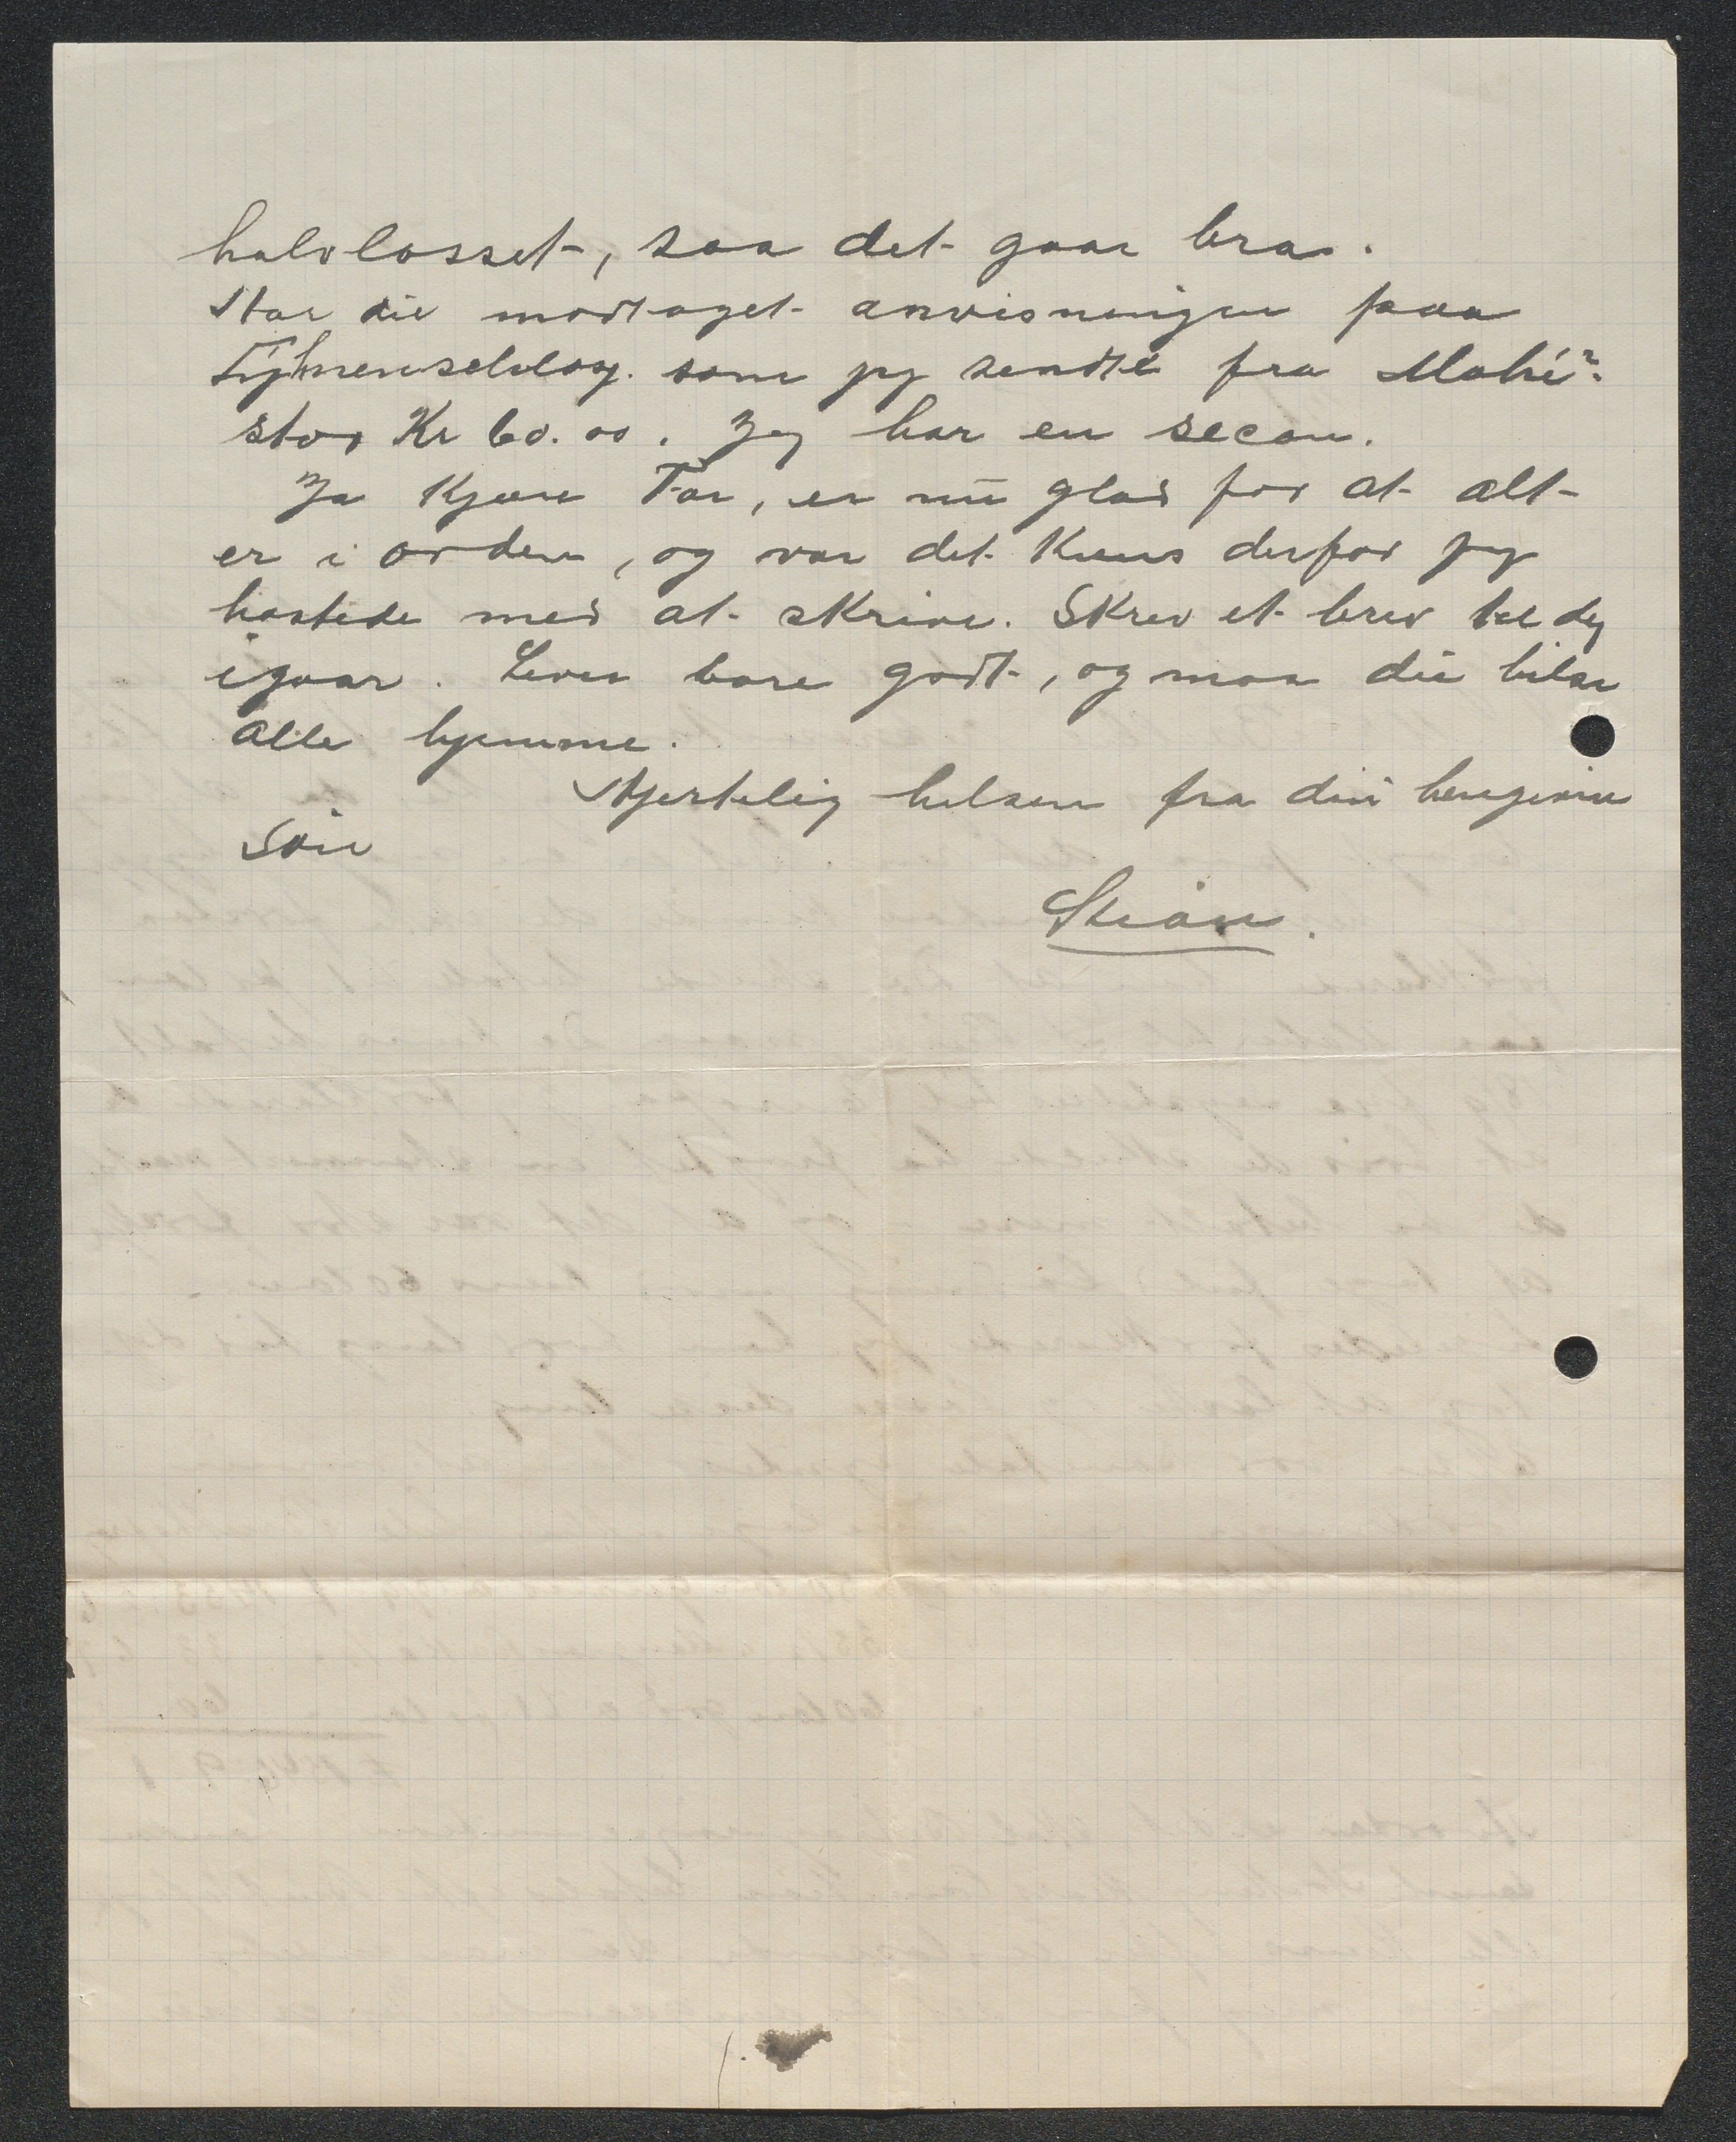 halvlosset, saa det gaar bra.
Har du modtaget anvisningen paa
som jeg sendte fra Mahé
stor Kr 60.00. Jeg har en secon.
Ja Kjære Far, er nu glad for at alt
er i orden, og var det Kuns derfor jeg
hastede med at skrive. Skrev et brev til dig
igaar. Lever bare godt, og maa du hilse
alle hjemme.
Hjertelig hilsen fra din hengivne
Søn